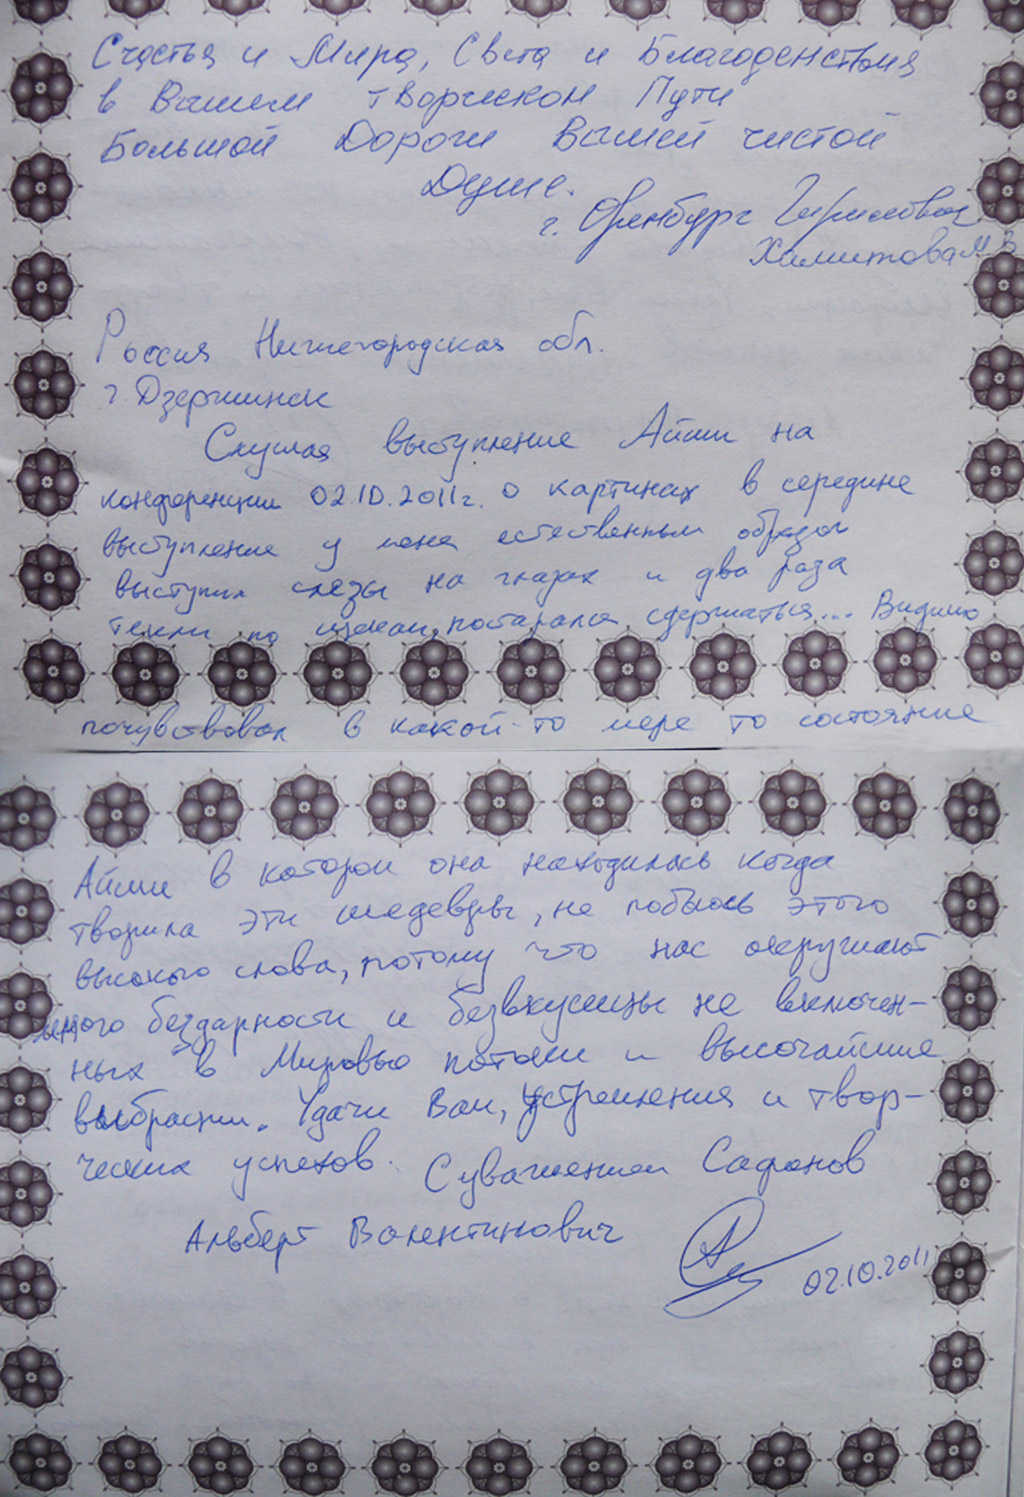 Счастья и Мира, Света и Благоденствия
в Вашем творческом Пути
Большой Дороги Вашей чистой
Душе.
г. Оренбург
Хамитова
Россия Нижегородская обл.
г. Дзержинск
Слушая выступление Айши на
конференции 02.10.2011г. о картинах в середине
выступления у меня естественным образом
выступили слезы на глазах и два раза
текли по щекам, постарался сдержаться... Видимо
почувствовал в какой-то мере то состояние
Айши в котором она находилась когда
творила эти шедевры, не побоюсь этого
высокого слова, потому что нас окружают
много бездарности и безвкусицы не включен-
ных в Мировые потоки и высочайшие
вибрации. Удачи Вам, устремления и твор-
ческих успехов. С уважением Сафонов
Альберт Валентинович
02.10.2011